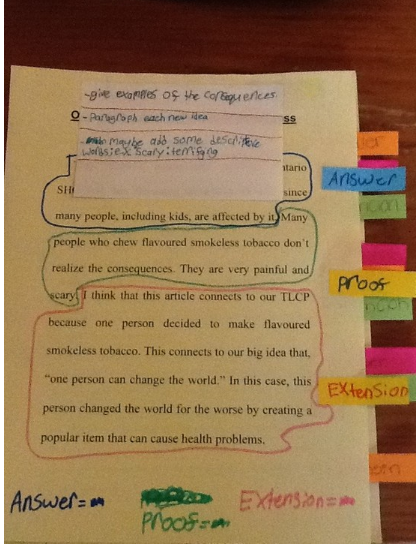 -give examples of the consequences.
O
ss
-Paragraph each new idea
- maybe add some descriptive
words i.e scary:terrifing
ntario
SHO
since
many people, including kids, are affected by it. Many
people who chew flavoured smokeless tobacco don't
realize the consequences. They are very painful and
scary. I think that this article connects to our TLCP
because one person decided to make flavoured
smokeless tobacco. This connects to our big idea that,
"one person can change the world." In this case, this
person changed the world for the worse by creating a
popular item that can cause health problems.
Answer
Proof
EXtension
Answer=
Proof=
EXtension=